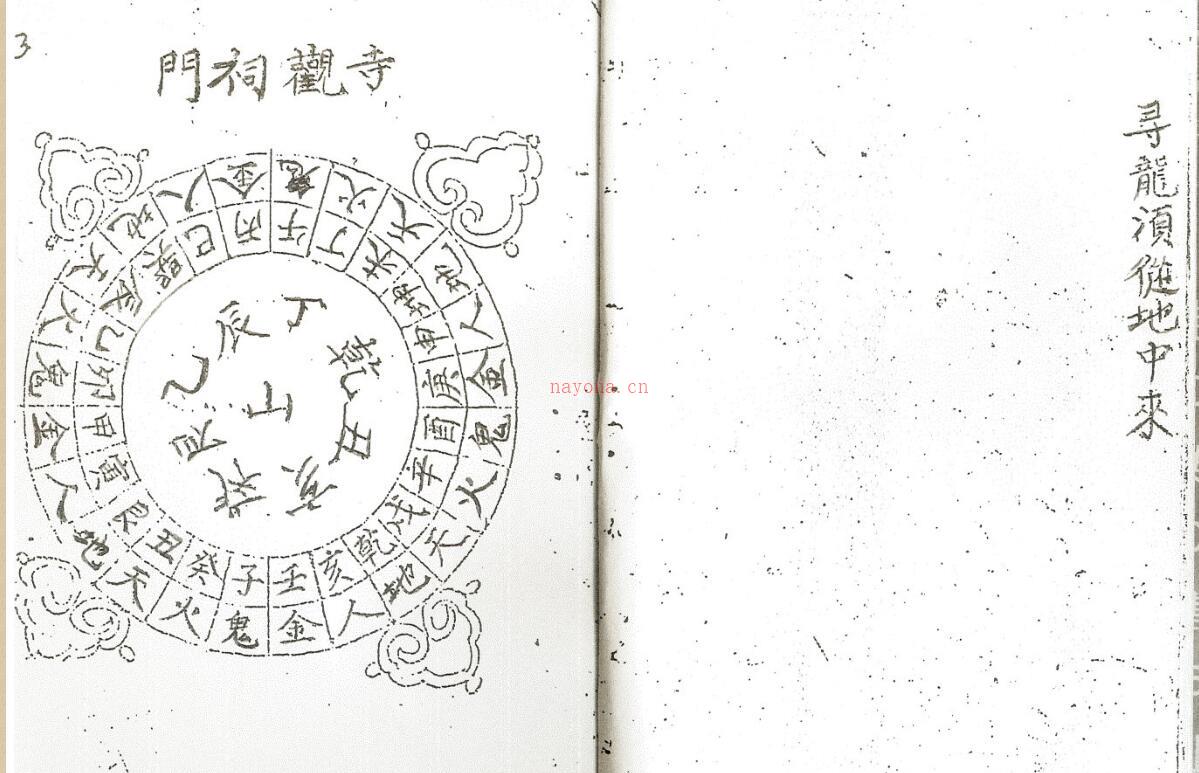 尋龍湏從地中來
3
寺觀祠門
鬼火天地人金鬼火天地人金鬼火天地人金鬼火天地人金
午丁未坤申庚酉辛戌乾亥壬子癸丑艮寅甲卯乙辰巽巳丙
丁乾丑亥辰乙
nayona.cn